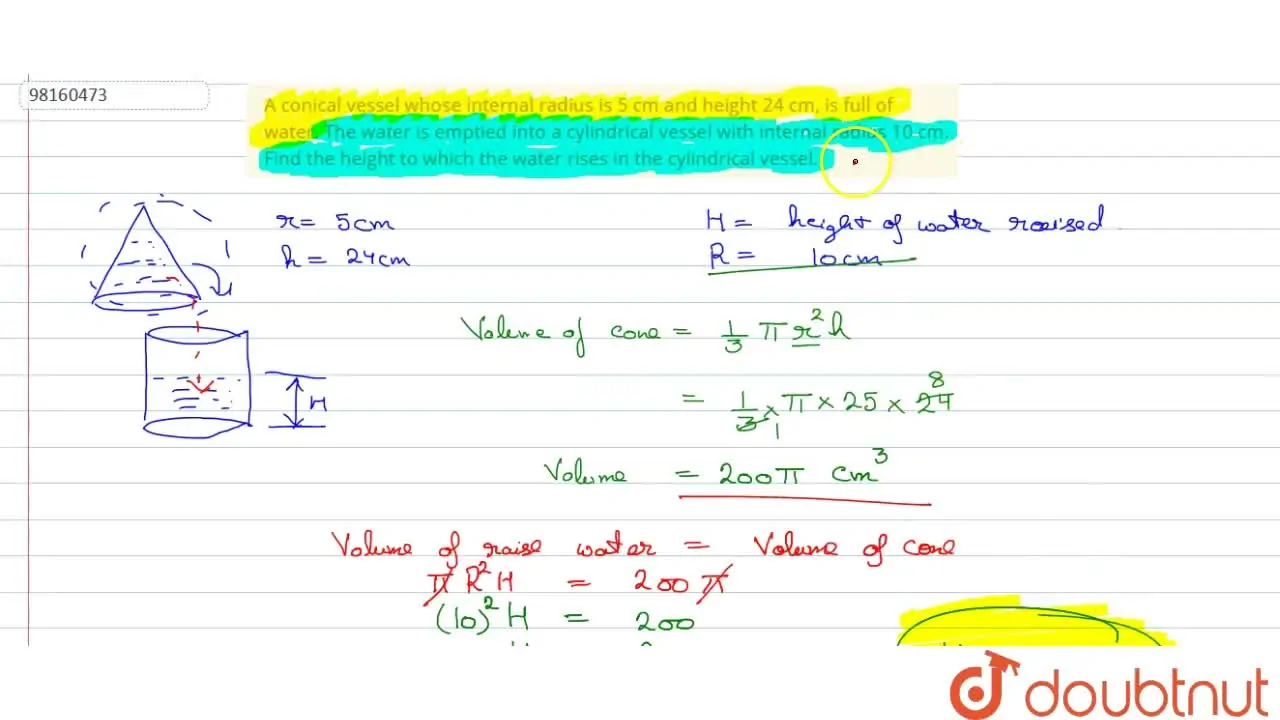 98160473
A conical vessel whose internal radius is 5 cm and height 24 cm, is full of
water. The water is emptied into a cylindrical vessel with internal radius 10 cm.
Find the height to which the water rises in the cylindrical vessel.
r = 5cm
h = 24cm
H = height of water raised
R = 10cm
H
Volume of cone = 1/3 π r² h
= 1/3 × π × 25 × 24 8
1
Volume = 200π cm³
Volume of raise water = Volume of cone
π R² H = 200 π
(10)² H = 200
doubtnut